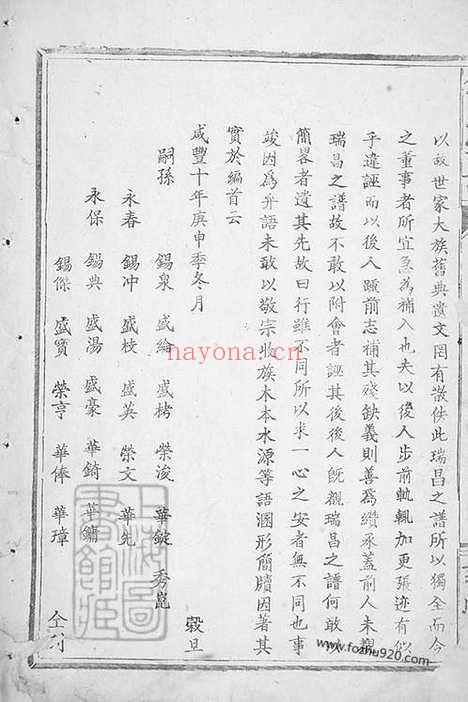 以故世家大族舊典遺文罔有散佚此瑞昌之譜所以獨全而今
之董事者所宜急為補入也夫以後人步前軌輒加更張迹有似
乎違誣而以後人踵前志補其殘缺義則善為纘承蓋前人未覩
瑞昌之譜故不敢以附會者誣其後後人既觀瑞昌之譜何敢以
簡畧者遺其先故曰行雖不同所以求一心之安者無不同也事
竣因為弁語未敢以敬宗收族木本水源等語溷形簡牘因著其
實於編首云
咸豐十年庚申季冬月 穀旦
嗣孫 錫泉 盛綸 盛栲 榮浚 華錠 秀崑
永春 錫冲 盛校 盛英 榮文 華先
永保 錫典 盛湯 盛豪 華錡 華鏞
錫傑 盛寳 榮亨 華俸 華璋 仝刋
上海圖書館藏
hayona.cn
www.fozhu920.com